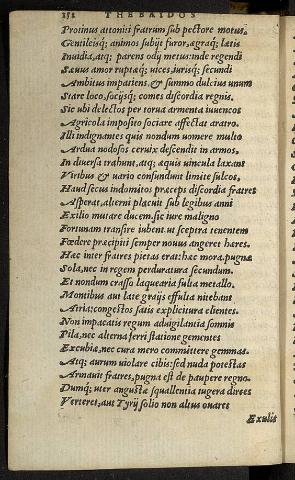 152 THEBAIDOS
Protinus attoniti fratrum sub pectore motus,
Gentilesq; animos subijt furor, ægraq; lætis
Inuidia, atq; parens odij metus: inde regendi
Sæuus amor ruptæq; uices, iurisq; secundi
Ambitus impatiens, & summo dulcius unum
Stare loco, socijsq; comes discordia regnis.
Sic ubi delectos per torua armenta iuuencos
Agricola imposito sociare affectat aratro.
Illi indignantes quis nondum uomere multo
Ardua nodosos ceruix descendit in armos,
In diuersa trahunt, atq; æquis uincula laxant
Viribus & uario confundunt limite sulcos.
Haud secus indomitos præceps discordia fratres
Asperat, alterni placuit sub legibus anni
Exilio mutare ducem. sic iure maligno
Fortunam transire iubent. ut sceptra tenentem
Fœdere præcipiti semper nouus angeret hæres.
Hæc inter fratres pietas erat: hæc mora, pugnæ
Sola, nec in regem perduratura secundum.
Et nondum crasso laquearia fulta metallo.
Montibus aut late graijs effulta nitebant
Atria: congestos satis explicitura clientes.
Non impacatis regum aduigilantia somnis
Pila, nec alterna ferri statione gementes
Excubiæ, nec cura mero committere gemmas.
Atq; aurum uiolare cibis: sed nuda potestas
Armauit fratres, pugna est de paupere regno.
Dumq; uter angustæ squallentia iugera dirces
Verteret, aut Tyrij solio non altus ouaret
Exulis